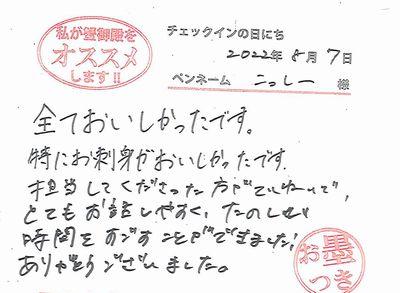 私が蟹御殿を
オススメ
します!!
チェックインの日にち
2022年 8月 7日
ペンネーム こっしー 様
全ておいしかったです。
特にお刺身がおいしかったです.
担当してくださった方がていねいで、
とてもお話しやすく、たのしい
時間をすごすことができました!
ありがとうございました。
お墨
つき